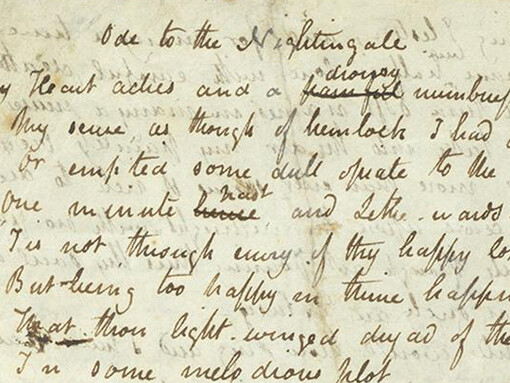 Ode to the Nightingale
drowsy
y Heart aches and a painful numbness
My sense, as though of hemlock I had
Or emptied some dull opiate to the
past
One minute hence and Lethe-wards
'Tis not through envy of thy happy lo
But being too happy in thine happin
That thou light-winged dryad of the
In some melodious plot